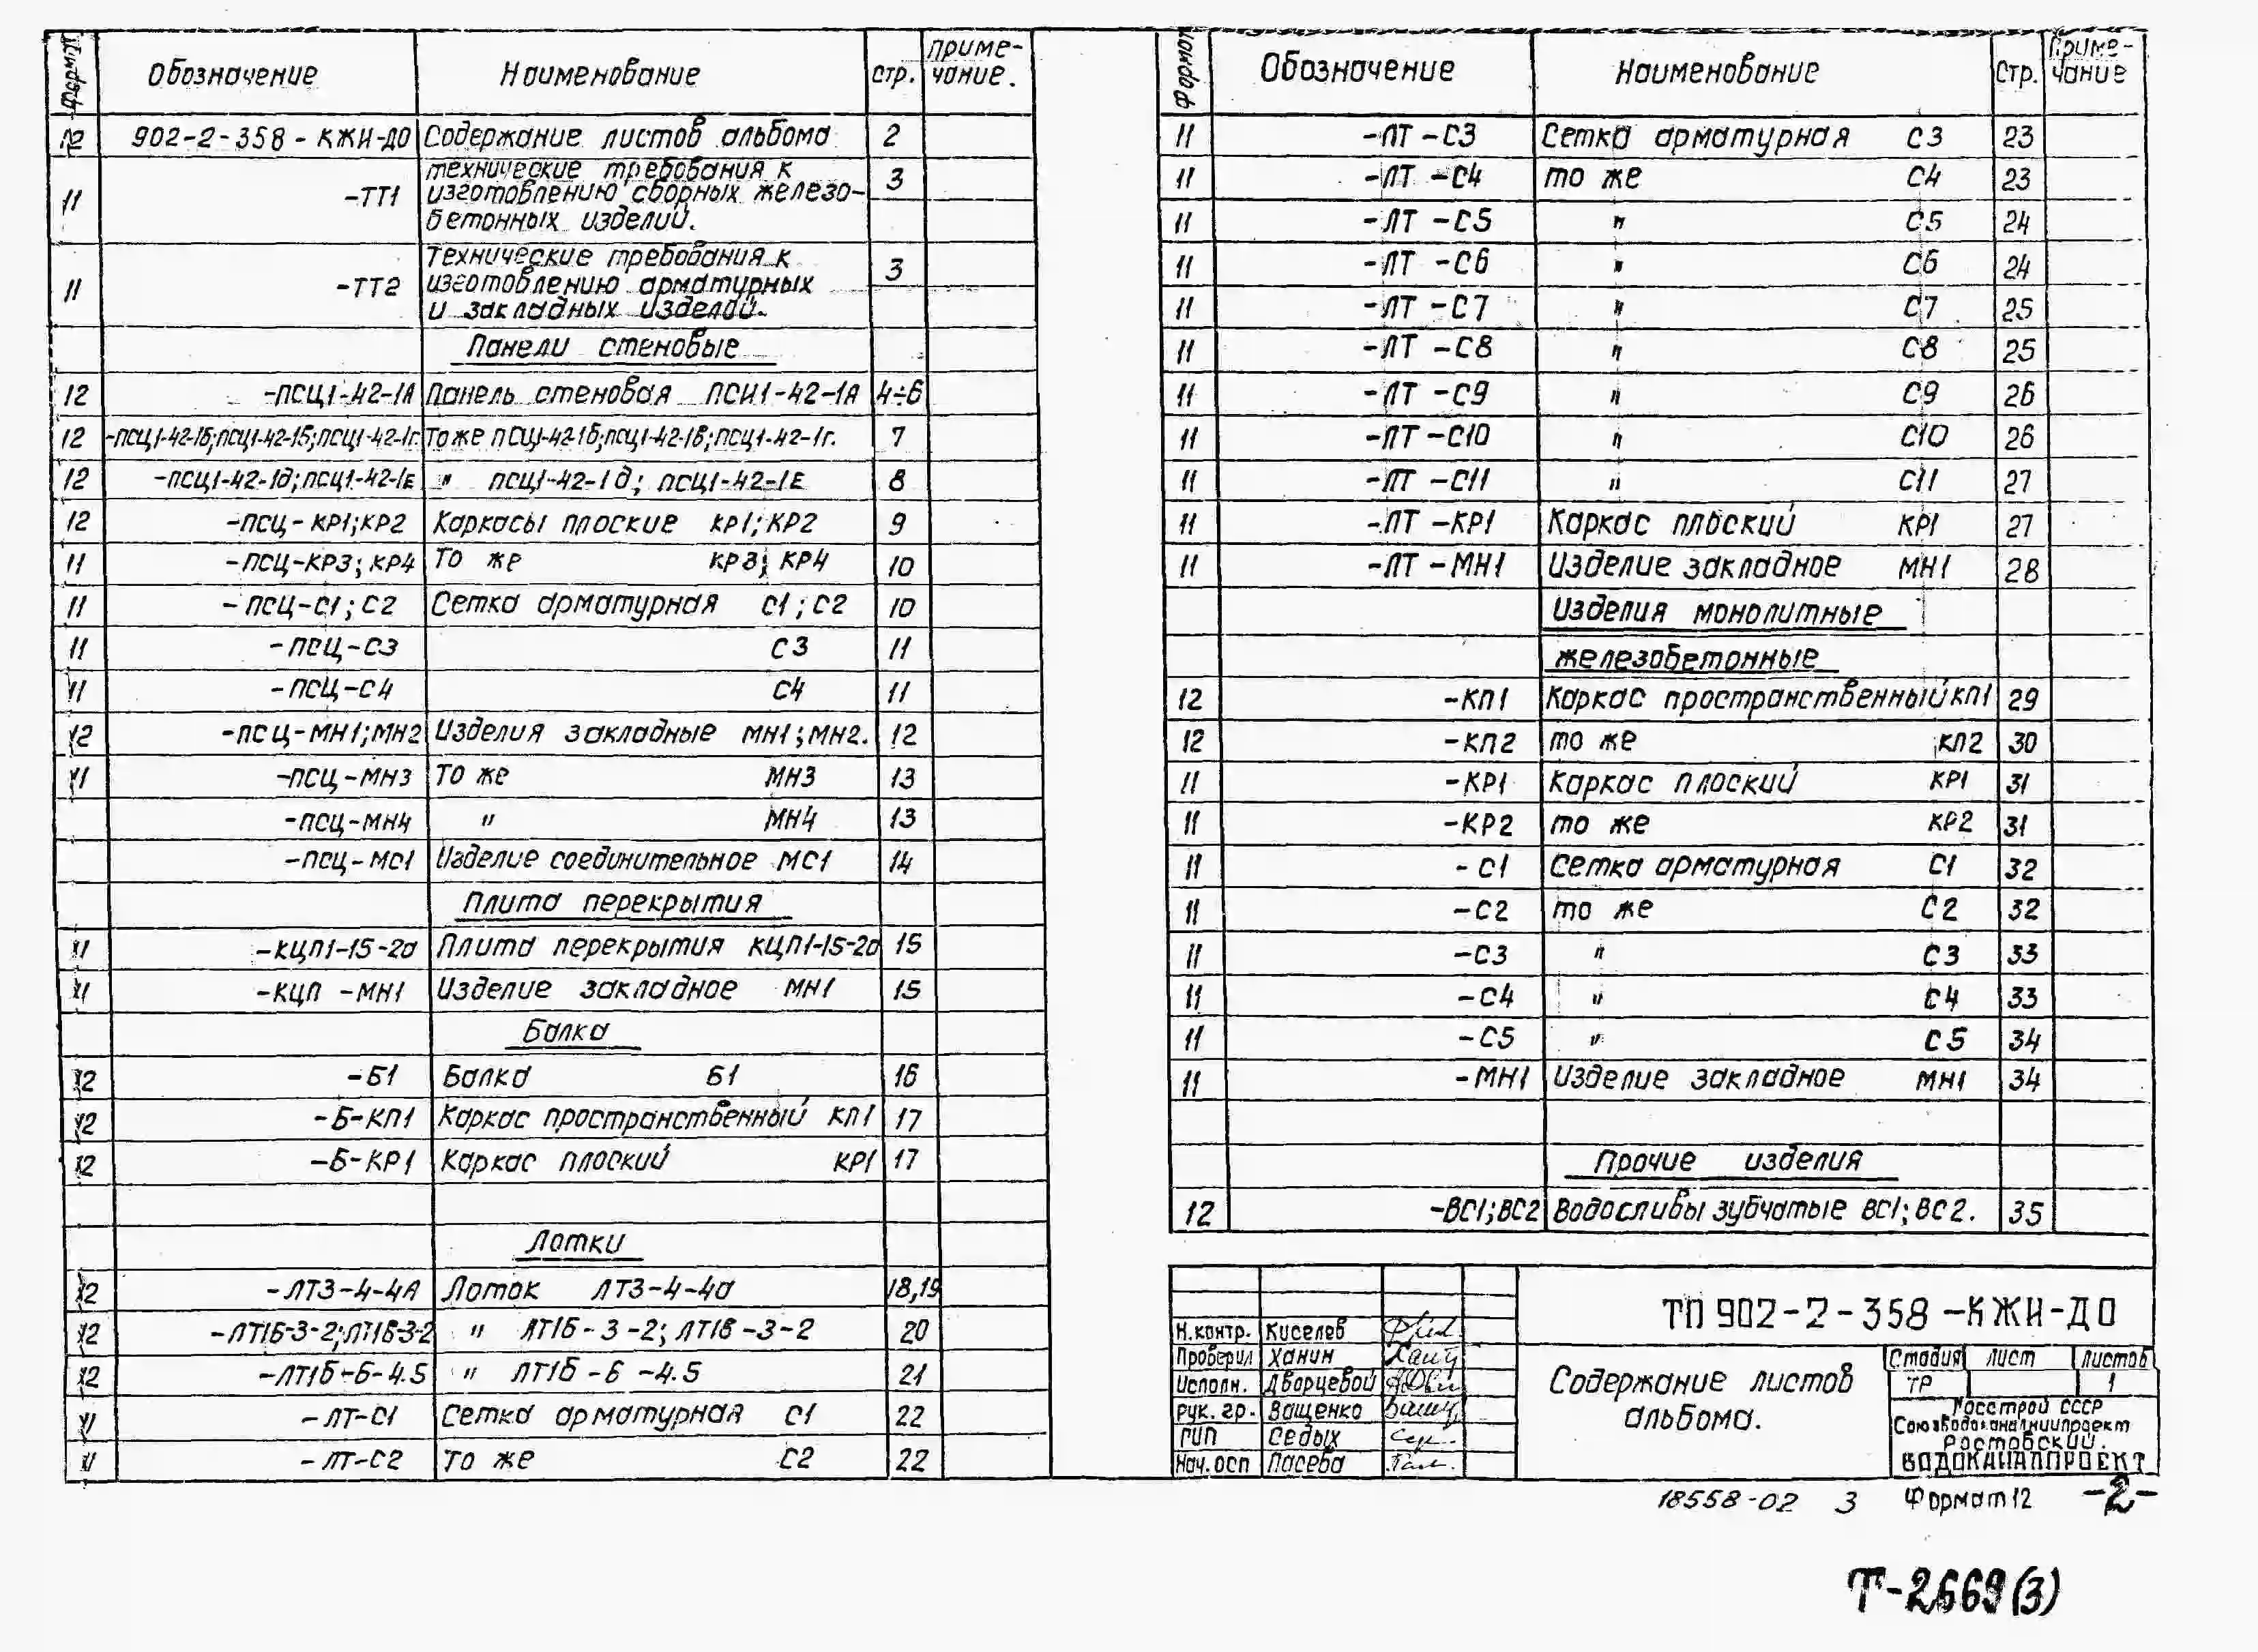 Формат Обозначение Наименование стр. Приме-
чание.
12 902-2-358-КЖИ-ДО Содержание листов альбома 2
11 -ТТ1 технические требования к
изготовлению сборных железо-
бетонных изделий. 3
11 -ТТ2 Технические требования к
изготовлению арматурных
и закладных изделий. 3
Панели стеновые
12 -ПСЦ1-42-1А Панель стеновая ПСЦ1-42-1А 4÷6
12 -ПСЦ1-42-1б;ПСЦ1-42-1б;ПСЦ1-42-1г. То же ПСЦ1-42-1б;ПСЦ1-42-1в;ПСЦ1-42-1г. 7
12 -ПСЦ1-42-1д;ПСЦ1-42-1Е " ПСЦ1-42-1д; ПСЦ1-42-1Е 8
12 -ПСЦ-КР1;КР2 Каркасы плоские КР1;КР2 9
11 -ПСЦ-КР3;КР4 То же КР3; КР4 10
11 -ПСЦ-С1;С2 Сетка арматурная С1;С2 10
11 -ПСЦ-С3 С3 11
11 -ПСЦ-С4 С4 11
12 -ПСЦ-МН1;МН2 Изделия закладные МН1;МН2. 12
11 -ПСЦ-МН3 То же МН3 13
-ПСЦ-МН4 " МН4 13
-ПСЦ-МС1 Изделие соединительное МС1 14
Плита перекрытия
11 -КЦП1-15-2а Плита перекрытия КЦП1-15-2а 15
11 -КЦП -МН1 Изделие закладное МН1 15
Балка
12 -Б1 Балка Б1 16
12 -Б-КП1 Каркас пространственный КП1 17
12 -Б-КР1 Каркас плоский КР1 17
Лотки
12 -ЛТ3-4-4А Лоток ЛТ3-4-4а 18,19
12 -ЛТ1Б-3-2;ЛТ1В-3-2 " ЛТ1Б-3-2; ЛТ1В-3-2 20
12 -ЛТ1б-6-4.5 " ЛТ1б-6-4.5 21
11 -ЛТ-С1 Сетка арматурная С1 22
11 -ЛТ-С2 То же С2 22
Формат Обозначение Наименование Стр. Приме-
чание
11 -ЛТ -С3 Сетка арматурная С3 23
11 -ЛТ -С4 то же С4 23
11 -ЛТ -С5 " С5 24
11 -ЛТ -С6 " С6 24
11 -ЛТ -С7 " С7 25
11 -ЛТ -С8 " С8 25
11 -ЛТ -С9 " С9 26
11 -ЛТ -С10 " С10 26
11 -ЛТ -С11 " С11 27
11 -ЛТ -КР1 Каркас плоский КР1 27
11 -ЛТ -МН1 Изделие закладное МН1 28
Изделия монолитные
железобетонные
12 -КП1 Каркас пространственный КП1 29
12 -КП2 то же КП2 30
11 -КР1 Каркас плоский КР1 31
11 -КР2 то же КР2 31
11 -С1 Сетка арматурная С1 32
11 -С2 то же С2 32
11 -С3 " С3 33
11 -С4 " С4 33
11 -С5 " С5 34
11 -МН1 Изделие закладное МН1 34
Прочие изделия
12 -ВС1;ВС2 Водосливы зубчатые ВС1;ВС2. 35
ТП 902-2-358-КЖИ-ДО
Н.контр. Киселев
Проверил Ханин
Исполн. Дворцевой
Рук. гр. Ващенко
ГИП Седых
Нач. осп Пасева
Содержание листов
альбома.
Стадия Лист Листов
ТР 1
Госстрой СССР
Союзводоканалниипроект
Ростовский
ВОДОКАНАЛПРОЕКТ
18558-02 3 Формат12 -2-
Т-2669(3)